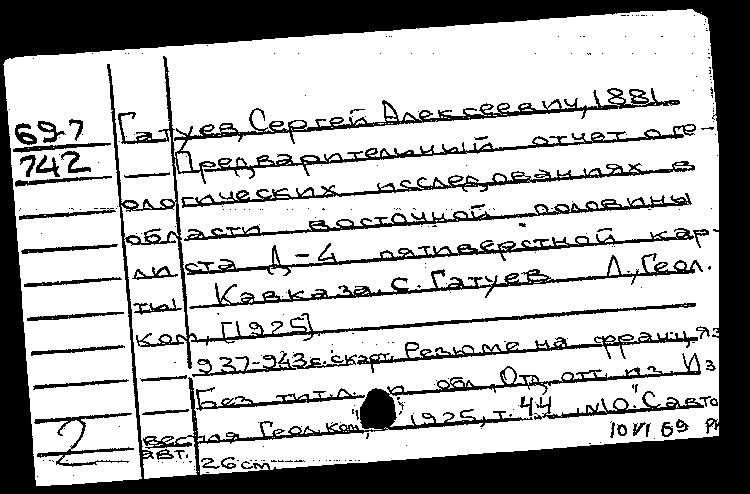 69-7
742
Гатуев, Сергей Алексеевич, 1881.
Предварительный отчет о ге-
ологических исследованиях в
области восточной половины
листа Д-4 пятиверстной кар-
ты Кавказа. С. Гатуев Л., Геол.
ком., [1925]
937-943 с. с карт. Резюме на франц. яз
Без тит. л. и обл., Отд. отт. из "Из
вестия Геол. ком., 1925, т. 44, №10." С авто
авт. 26 см.
2
10 VI 69